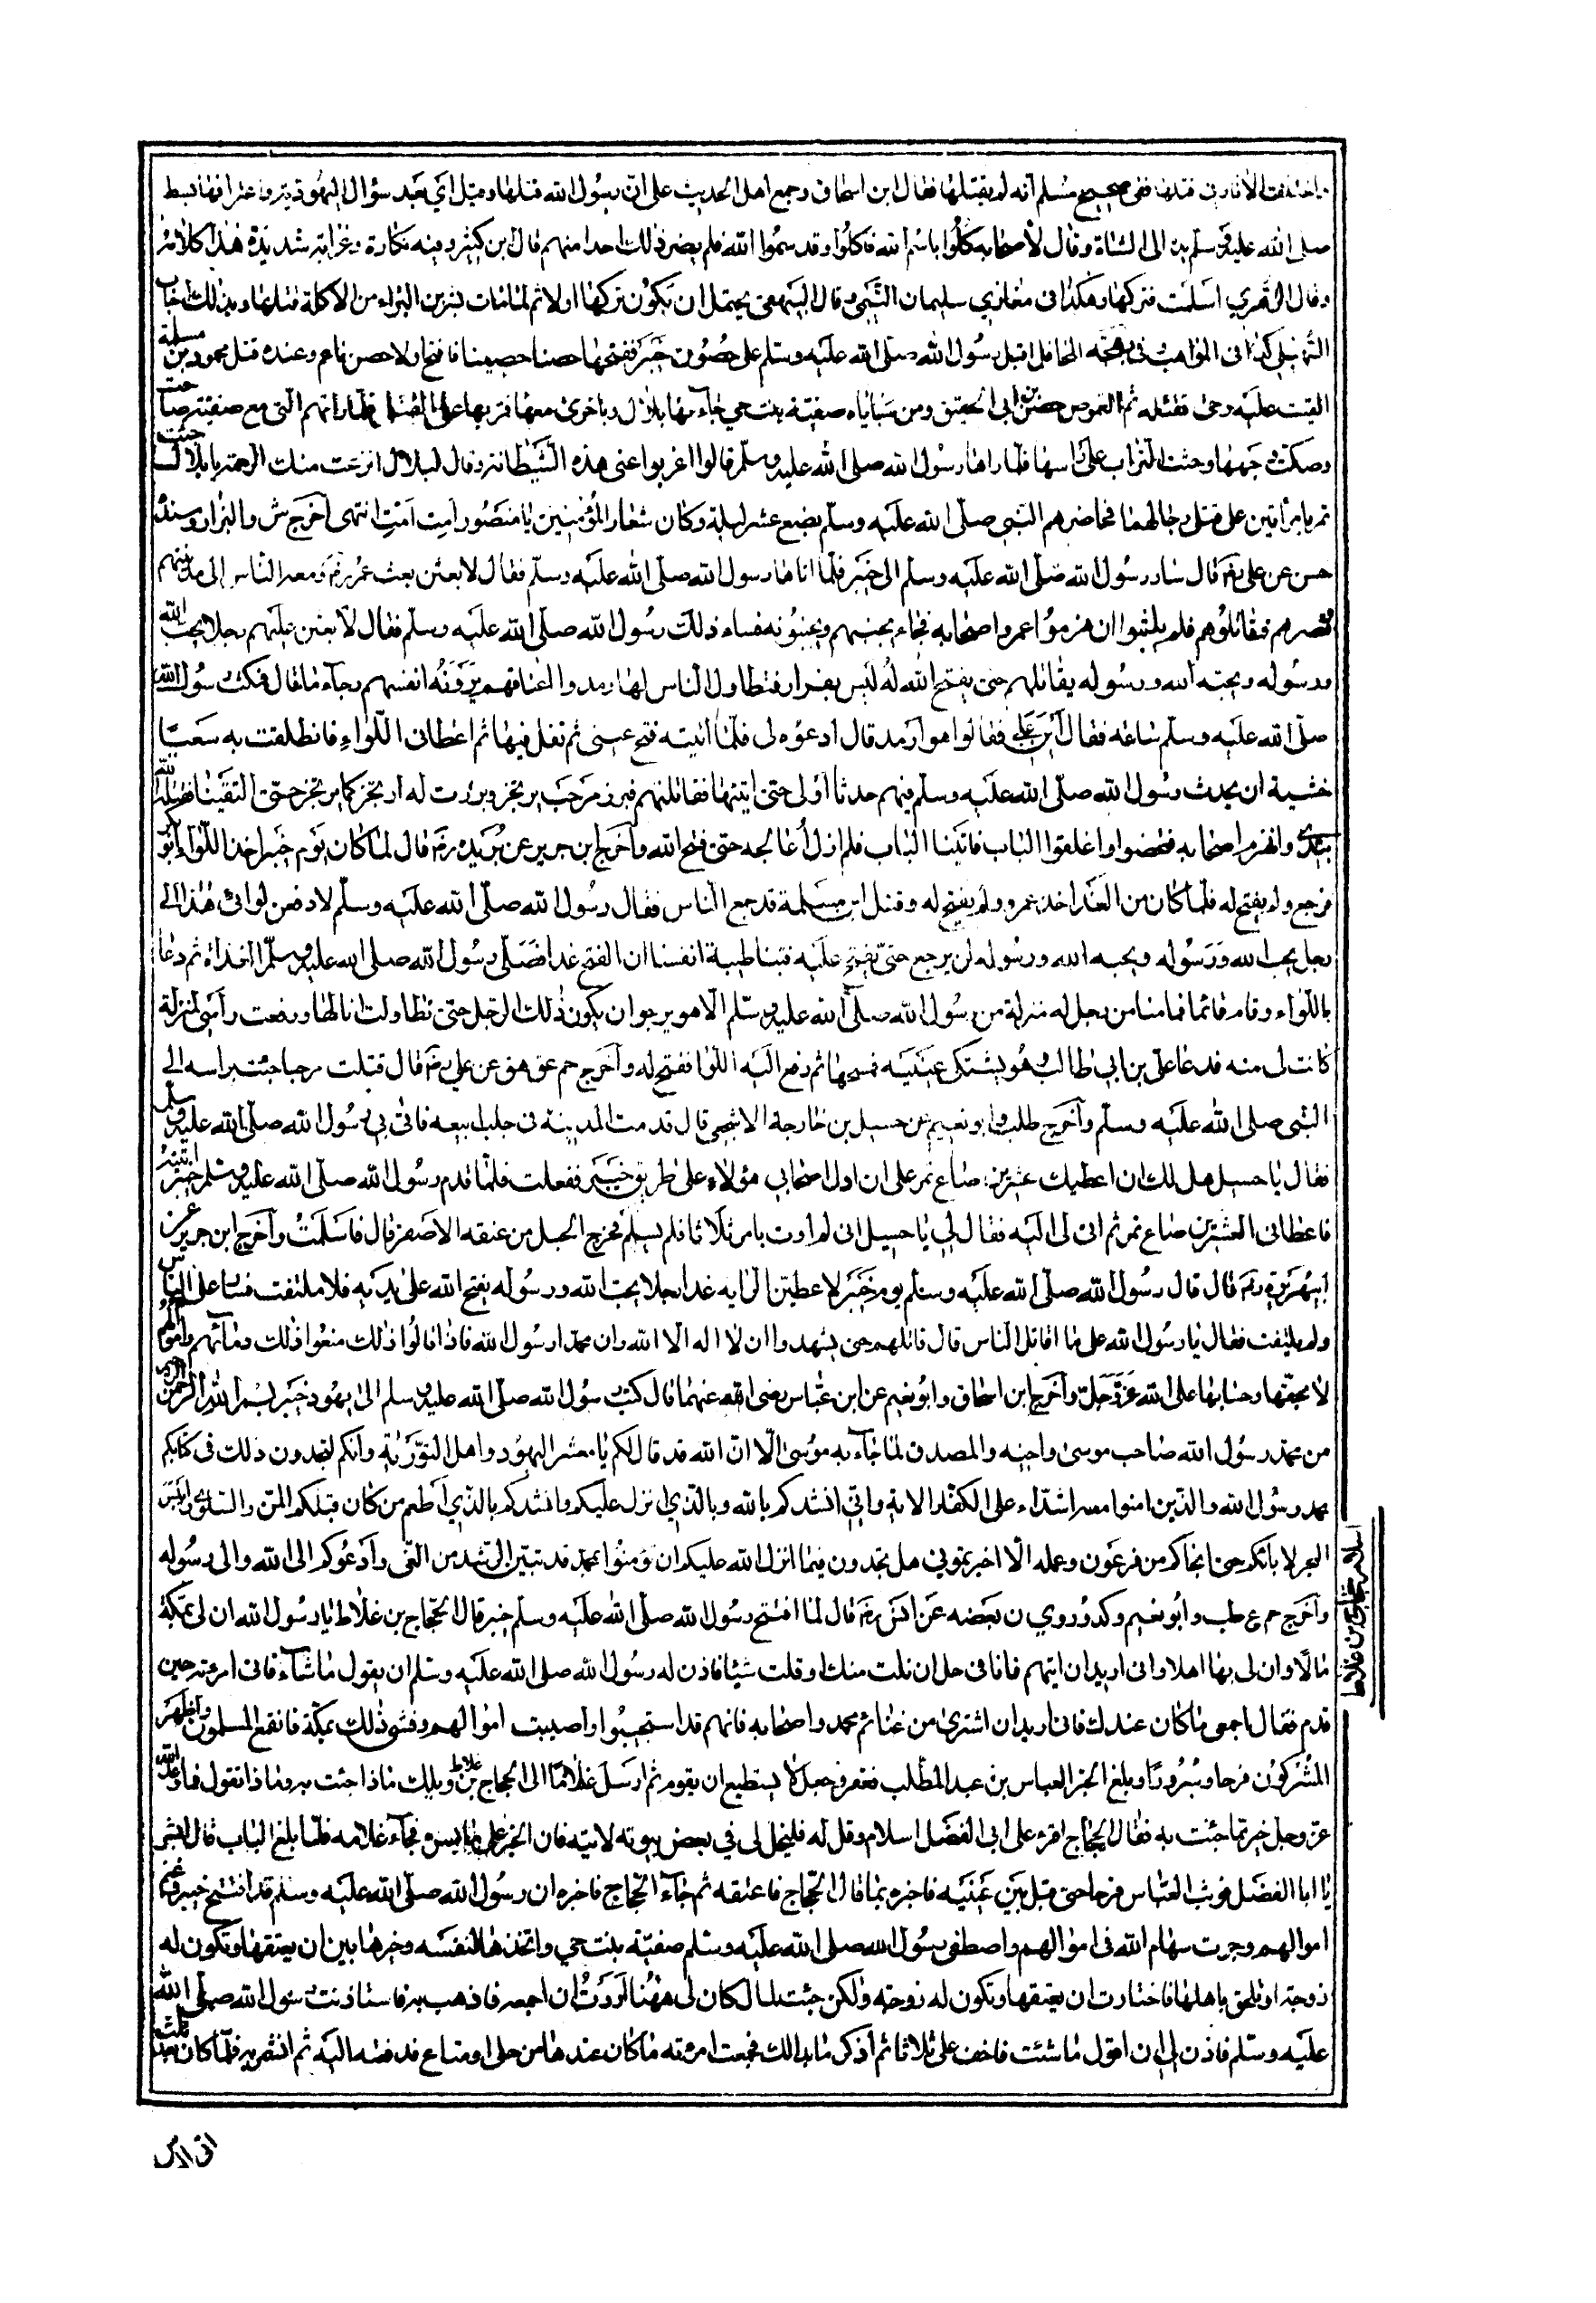 اختلفت الاثار فى قتلها ففى صحيح مسلم انه لم يقتلها فقال ابن اسحاق وجمع اهل الحديث على ان رسول الله قتلها وقيل اي بعد سؤال اليهودية واعترافها بسط
صلى الله عليه وسلم يده الى الشاة وقال لاصحابه كلوا باسم الله فاكلوا وقد سموا الله فلم يضر ذلك احدا منهم قال ابن كثير وفيه نكارة وغرابة شديدة هذا كلامه
وقال الزهري اسلمت فتركها وهكذا فى مغازي سليمان التيمى وقال البيهقى يحتمل ان يكون تركها اولا ثم لما مات بشر بن البراء من الاكلة قتلها وبذلك اجاب
السهيلى كذا فى المواهب اقبل رسول الله صلى الله عليه وسلم على حصون خيبر ففتحها حصنا حصينا فافتح اولا حصن ناعم وعنده قتل محمود بن مسلمة
القيت عليه رحى فقتله ثم القموص حصن ابى الحقيق ومن سباياه صفية بنت حي جاء بها بلال وباخرى معها فمر بها على القتلى فلما راتهم التى مع صفية صاحت
وصكت وجهها وحثت التراب على راسها فلما راها رسول الله صلى الله عليه وسلم قالوا اغربوا عنى هذه الشيطانة وقال لبلال انزعت منك الرحمة يا بلال حيث
تمر بامراتين على قتلى رجالهما فحاصرهم النبى صلى الله عليه وسلم بضع عشر ليلة وكان شعار المؤمنين يا منصور امت امت انتهى اخرج ش والبزار وسنده
حسن عن على رضه قال سار رسول الله صلى الله عليه وسلم الى خيبر فلما اتاها رسول الله صلى الله عليه وسلم فقال لابعثن بعث عمر رضه ومعه الناس الى مدينتهم
وقصرهم فقاتلوهم فلم يلبثوا ان هزموا عمر واصحابه فجاء يجبنهم ويجبنونه فساء ذلك رسول الله صلى الله عليه وسلم فقال لابعثن عليهم رجلا يحب الله
ورسوله ويحبه الله ورسوله يقاتلهم حتى يفتح الله له ليس بفرار فتطاول الناس لها ومدوا اعناقهم يرونه انفسهم رجاء ما قال فمكث رسول الله
صلى الله عليه وسلم ساعة فقال اين على فقالوا هو ارمد قال ادعوه لى فلما اتيته فتح عينى ثم تفل فيها ثم اعطانى اللواء فانطلقت به سعيا
خشية ان يحدث رسول الله صلى الله عليه وسلم فيهم حدثا او لى حتى اتيتها فقاتلتهم فبرز مرحب يرتجز وبرزت له ارتجز كما يرتجز حتى التقينا فقتله الله
بيدى وانهزم اصحابه فتحصنوا واغلقوا الباب فاتينا الباب فلم ازل اعالجه حتى فتح الله واخرج ابن جرير عن بريدة رضه قال لما كان يوم خيبر اخذ اللواء ابو بكر
فرجع ولم يفتح له فلما كان من الغد اخذ عمر ولم يفتح له وقتل ابن مسلمة فرجع الناس فقال رسول الله صلى الله عليه وسلم لادفعن لوائى هذا الى
رجل يحب الله ورسوله ويحبه الله ورسوله لن يرجع حتى يفتح عليه فبتنا طيبة انفسنا ان الفتح غدا فصلى رسول الله صلى الله عليه وسلم الغداة ثم دعا
باللواء وقام قائما فما منا من رجل له منزلة من رسول الله صلى الله عليه وسلم الا هو يرجوان يكون ذلك الرجل حتى تطاولت انا لها ورفعت راسى لمنزلة
كانت لى منه فدعا على بن ابى طالب هو يشتكى عينيه فمسحها ثم دفع اليه اللوا ففتح له واخرج حم عق هق عن على رضه قال قتلت مرحبا جئت براسه الى
النبى صلى الله عليه وسلم واخرج طب وابو نعيم عن حسيل بن خارجة الاشجعى قال قدمت المدينة فى جلب ابيعه فاتى بى رسول الله صلى الله عليه وسلم
فقال يا حسيل هل لك ان اعطيك عشرين صاع تمر على ان ادل اصحابى هؤلاء على طريق خيبر ففعلت فلما قدم رسول الله صلى الله عليه وسلم خيبر اتيته
فاعطانى العشرين صاع تمر ثم اتى لى اليه فقال لى يا حسيل انى لم اوت بامر ثلاثا فلم يسلم فخرج الحبل من عنقه الا صفر قال فاسلمت واخرج ابن جرير عن
ابى هريرة رضه قال قال رسول الله صلى الله عليه وسلم يوم خيبر لاعطين الراية غدا رجلا يحب الله ورسوله يفتح الله على يديه فلا ملتفت فسار على الناس
ولم يلتفت فقال يا رسول الله على ما اقاتل الناس قال قاتلهم حتى يشهدوا ان لا اله الا الله وان محمدا رسول الله فاذا قالوا ذلك منعوا ذلك دمائهم واموالهم
الا بحقها وحسابها على الله عز وجل واخرج ابن اسحاق وابو نعيم عن ابن عباس رضى الله عنهما قال كتب رسول الله صلى الله عليه وسلم الى يهود خيبر بسم الله الرحمن الرحيم
من محمد رسول الله صاحب موسى واخيه والمصدق لما جاء به موسى الا ان الله قد قال لكم يا معشر اليهود واهل التورية وانكم لتجدون ذلك فى كتابكم
محمد رسول الله والذين امنوا معه اشداء على الكفار الاية وانى انشدكم بالله وبالذي انزل عليكم وانشدكم بالذي اطعم من كان قبلكم المن والسلوى وايبس
البحر لابائكم حتى انجاكم من فرعون وعمله الا اخبرتمونى هل تجدون فيما انزل الله عليكم ان تؤمنوا بمحمد قد تبين الرشد من الغى وادعوكم الى الله والى رسوله
واخرج حم ع طب وابو نعيم وكد وروي ن بعضه عن انس رضه قال لما افتتح رسول الله صلى الله عليه وسلم خيبر قال الحجاج بن غلاط يا رسول الله ان لى بمكة
مالا وان لى بها اهلا وانى اريد ان اتيهم فانا فى حل ان نلت منك او قلت شيئا فاذن له رسول الله صلى الله عليه وسلم ان يقول ما شاء فاتى امرءته حين
قدم فقال اجمعى ما كان عندك فانى اريد ان اشترى من غنائم محمد واصحابه فانهم قد استبيحوا واصيبت اموالهم وفشى ذلك بمكة فانقمع المسلمون واظهر
المشركون فرحا وسرورا وبلغ الخبر العباس بن عبد المطلب فعقر وجعل لا يستطيع ان يقوم ثم ارسل غلاما الى الحجاج بن غلاط ويلك ماذا جئت به وماذا تقول فما وعد الله
عز وجل خير مما جئت به فقال الحجاج اقرء على ابى الفضل السلام وقل له فليخل لى فى بعض بيوته لاتيه فان الخبر على ما يسره فجاء غلامه فلما بلغ الباب قال ابشر
يا ابا الفضل فوثب العباس فرحا حتى قبل بين عينيه فاخبره بما قال الحجاج فاعتقه ثم جاء الحجاج فاخبره ان رسول الله صلى الله عليه وسلم قد افتتح خيبر وغنم
اموالهم وجرت سهام الله فى اموالهم واصطفى رسول الله صلى الله عليه وسلم صفية بنت حي واتخذها لنفسه وخيرها بين ان يعتقها وتكون له
زوجة او تلحق باهلها فاختارت ان يعتقها وتكون له زوجته ولكن جئت لمال كان لى ههنا اردت ان اجمعه فاذهب به فاستاذنت رسول الله صلى الله
عليه وسلم فاذن لى ان اقول ما شئت فاخف على ثلاثا ثم اذكر ما بدا لك فجمعت امرءته ما كان عندها من حلى او متاع فدفعته اليه ثم انشمر به فلما كان بعد ثلث
اسلام حجاج بن غلاط
اتى العباس